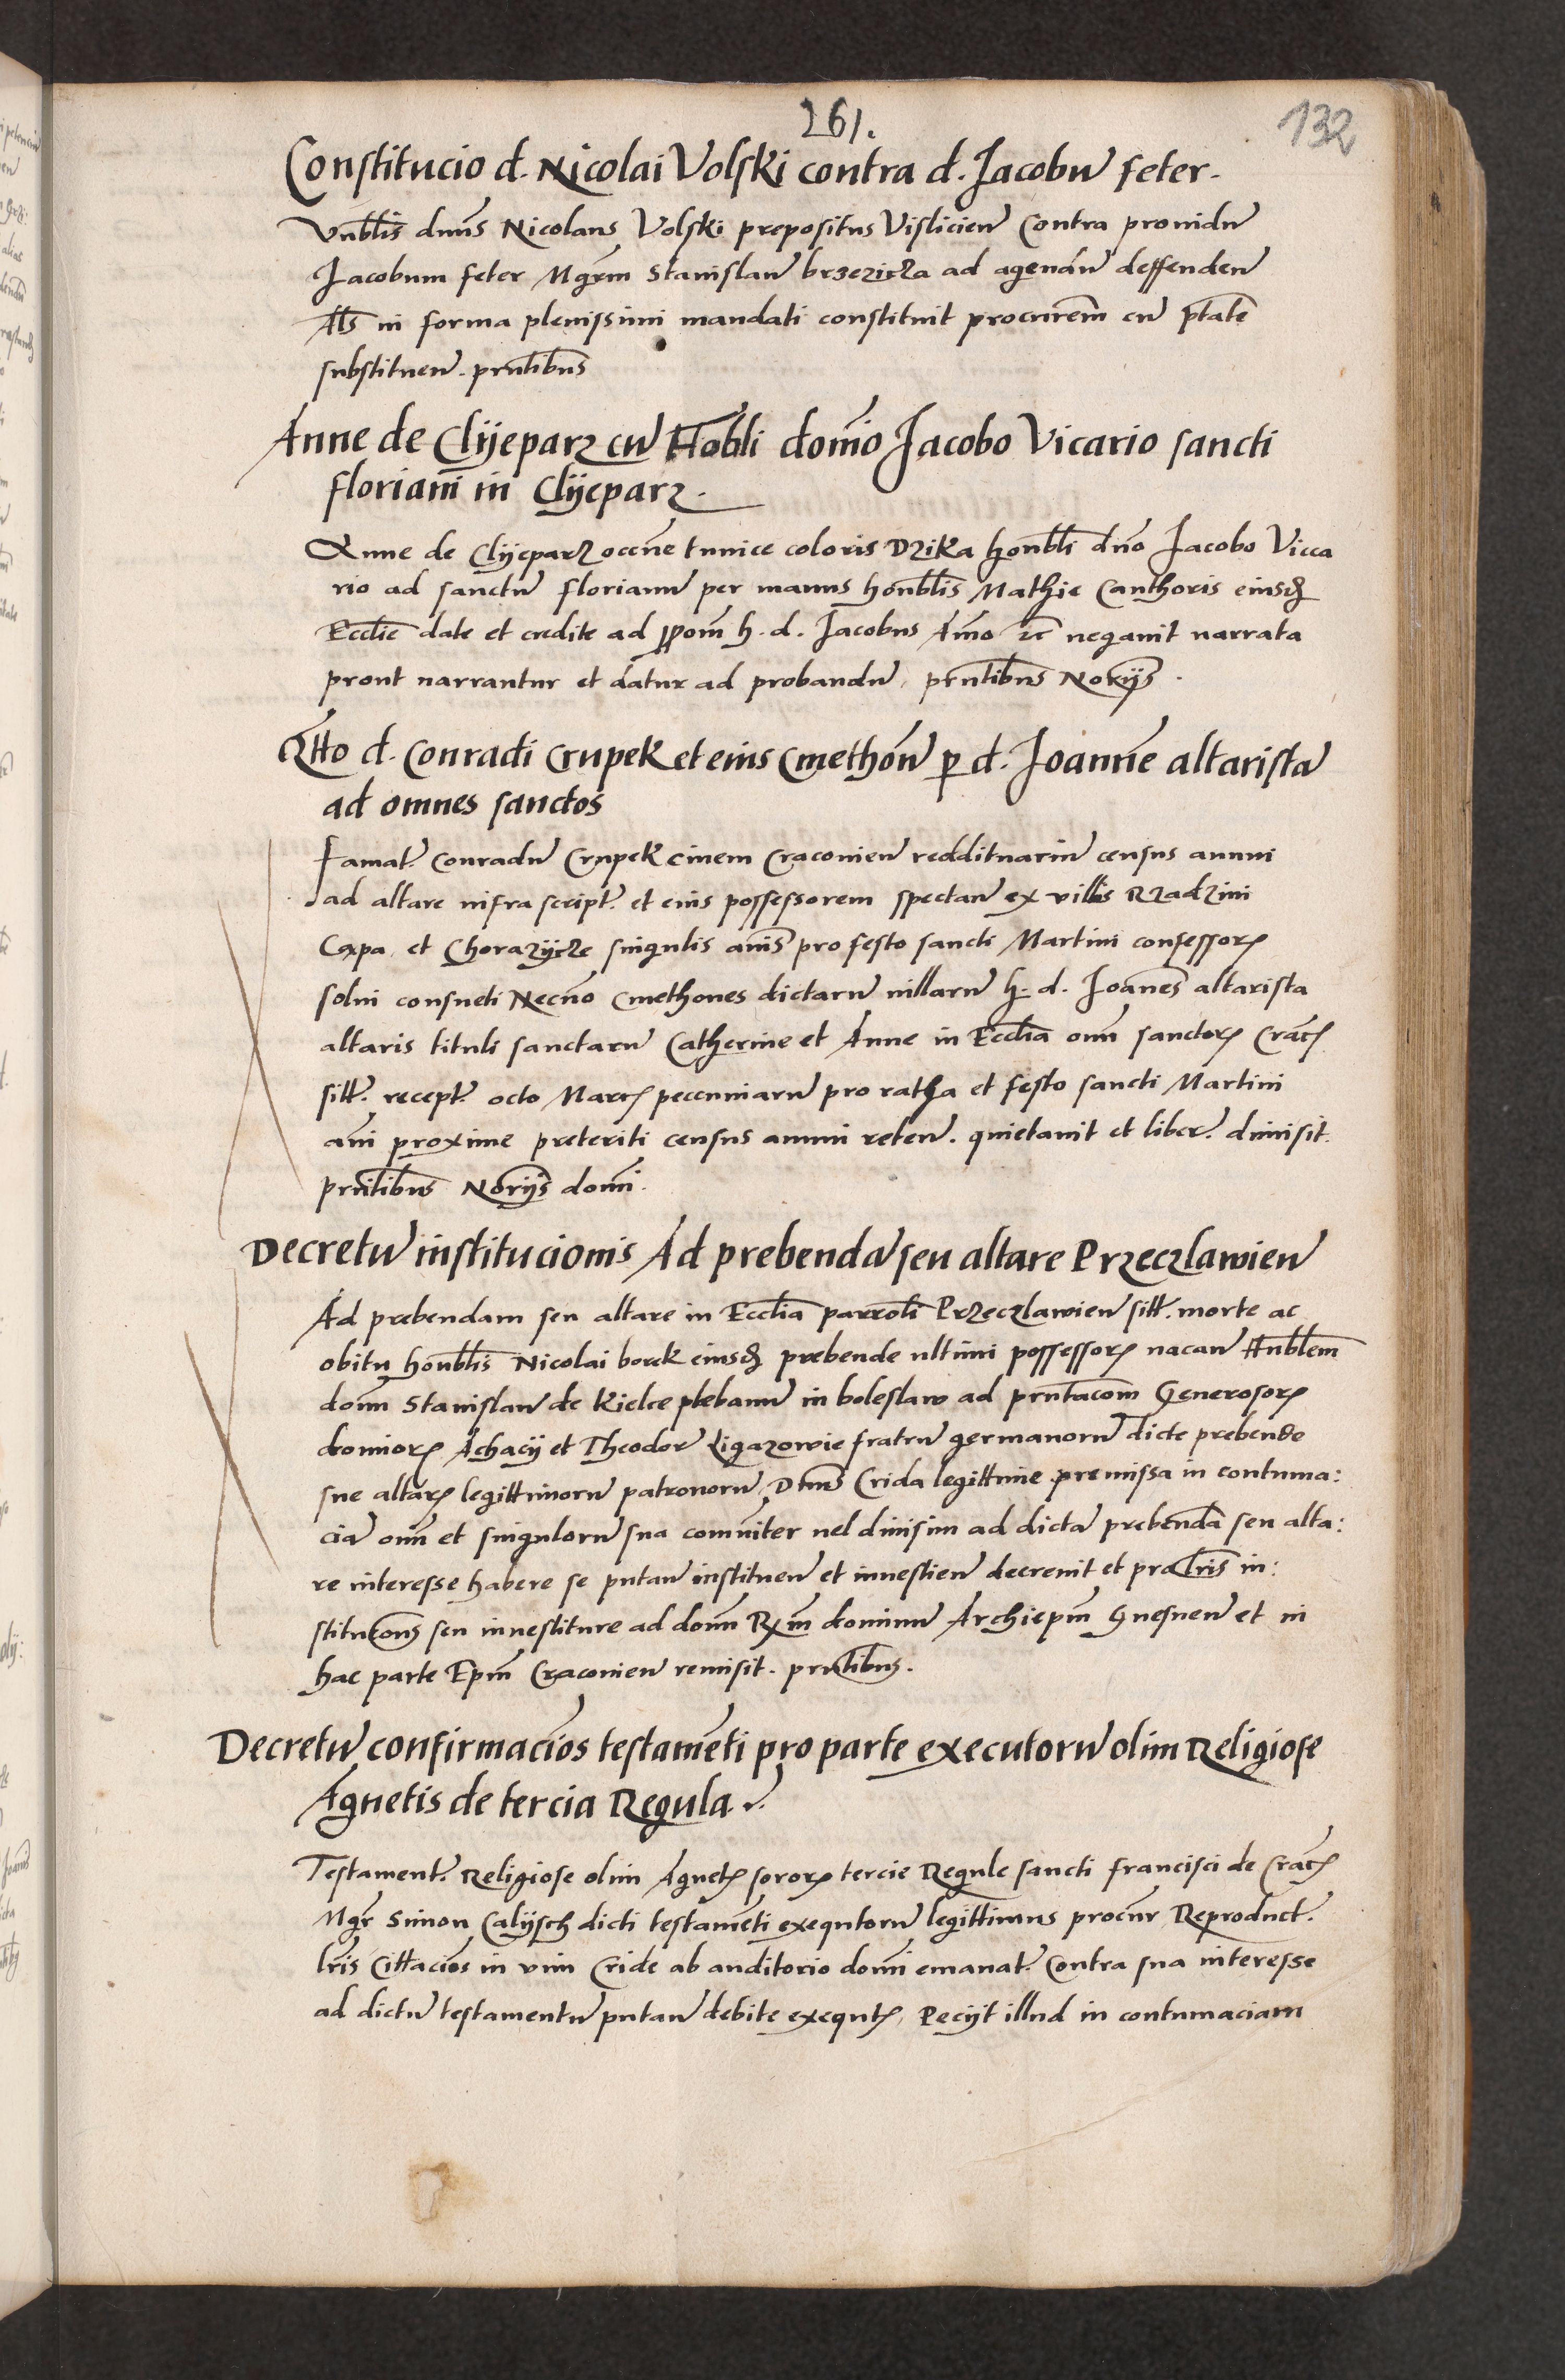 261.
132
Constitucio d. Nicolai Volski contra d. Jacobū feter.
Vnblis dnus Nicolaus Volski prepositus Visliciēn Contra prouidū
Jacobum feter Mgrm Stanislaū brzeziczka ad agendū deffendeñ
Als in forma plenissimi mandati constituit procurēm cū ptate
substitueñ. prntibus
Anne de Clijeparz cū Hōbli domīo Jacobo Vicario sancti
floriani in Clijeparz.
Anne de Clijeparz occne tunice coloris Dzika honbli dno Jacobo Vicca
rio ad sanctū florianū per manus honblis Mathie Canthoris eiusdē
Ecclie date et credite ad ppōm h. d. Jacobus Aīmo rc negauit narrata
prout narrantur et datur ad probandū, prntibus Norijs.
Qtto d. Conradi Crupek et eius Cmethōn p d. Joannē altaristā
ad omnes sanctos
Famat. Conradū Crupek ciuem Cracouieñ reddituariū census annui
ad altare infra script. et eius possessorem spectañ ex villis Rzadzini
Czpa, et Chorazijcze singulis anis pro festo sancti Martini confessorꝭ
solui consueti Necnō Cmethones dictarū uillarū h. d. Joanēs altarista
altaris tituli sanctarū Catherine et Anne in Ecclia oīm sanctorꝝ Cracꝭ
sitt. recept. octo Marcꝭ peccuniarū pro ratha et festo sancti Martini
ani proxime preteriti census annui reteñ. quietauit et liber. dimisit.
prntibus Norijs domī.
Decretū institucionis Ad prebendā seu altare Przeczlawieñ
Ad prebendam seu altare in Ecclia parroli Przeczlawieñ sitt. morte ac
obitu honblis Nicolai borek eiusdē prebende ultimi possessorꝭ uacañ Hnblem
domī Stanislaū de Kielce plebanū in boleslaw ad prntacōm Generosorꝝ
dominorꝝ Achacij et Theodori Ligazowie fratrū germanorū dicte prebende
siue altarꝭ legittimorū patronorū, Dnus Crida legittime premissa in contuma:
ciā oīm et singulorū sua comūiter uel diuisim ad dictā prebendā seu alta:
re interesse habere se putañ instituen et inuestien decreuit et pro lris in:
stitucōnis seu inuestiture ad domī Rxm dominū Archiepm Gnesneñ et in
hac parte Epm Cracouieñ remisit. prntibus.
Decretū confirmaciōs testamēti pro parte executorū olim Religiose
Agnetis de tercia Regula.
Testament. Religiose olim Agnetꝭ sororꝭ tercie Regule sancti francisci de Cracꝭ
Mgr Simon Calijsch dicti testamēti exequtorū legittimus procūr Reproduct.
lris Cittaciōs in vim Cride ab auditorio domī emanat. Contra sua interesse
ad dictū testamentū putañ debite exequtꝭ, Pecijt illud in contumaciam